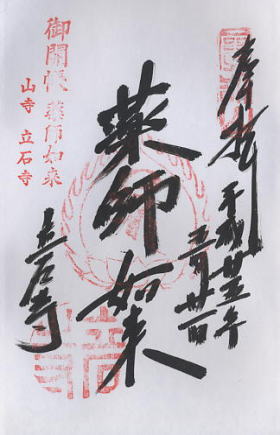 奉拝
平成廿五年
五月
薬師如来
立石寺
御開帳 薬師如来
山寺 立石寺